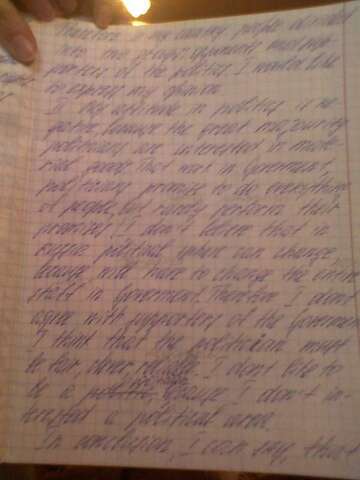 Therefore in my country people divided
into two groups: opponents and sup-
porters of the politics. I would like
to express my opinion.
My attitude in politics is ne-
gative, because the great majority
politicians are interested in mate-
rial goods. That work in Goverment,
politicians promise to do everything
of people, but rarely perform their
promises. I don't believe that in
Russia political sphere can change,
because will have to change the entire
staff in Goverment. Therefore I don't
agree with supporters of the Goverment.
I think that the politician must
be fair, clever, I don't like to
be a because I don't in-
terested a political area.
In conclusion, I can say, that